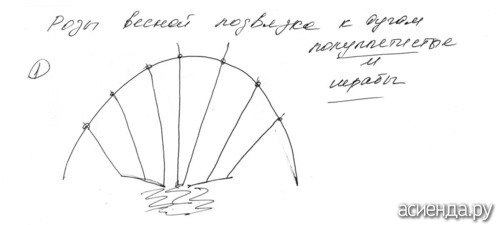 Розы весной подвязка к дугам
полуплетистые
и
шрабы
①
асиенда.ру